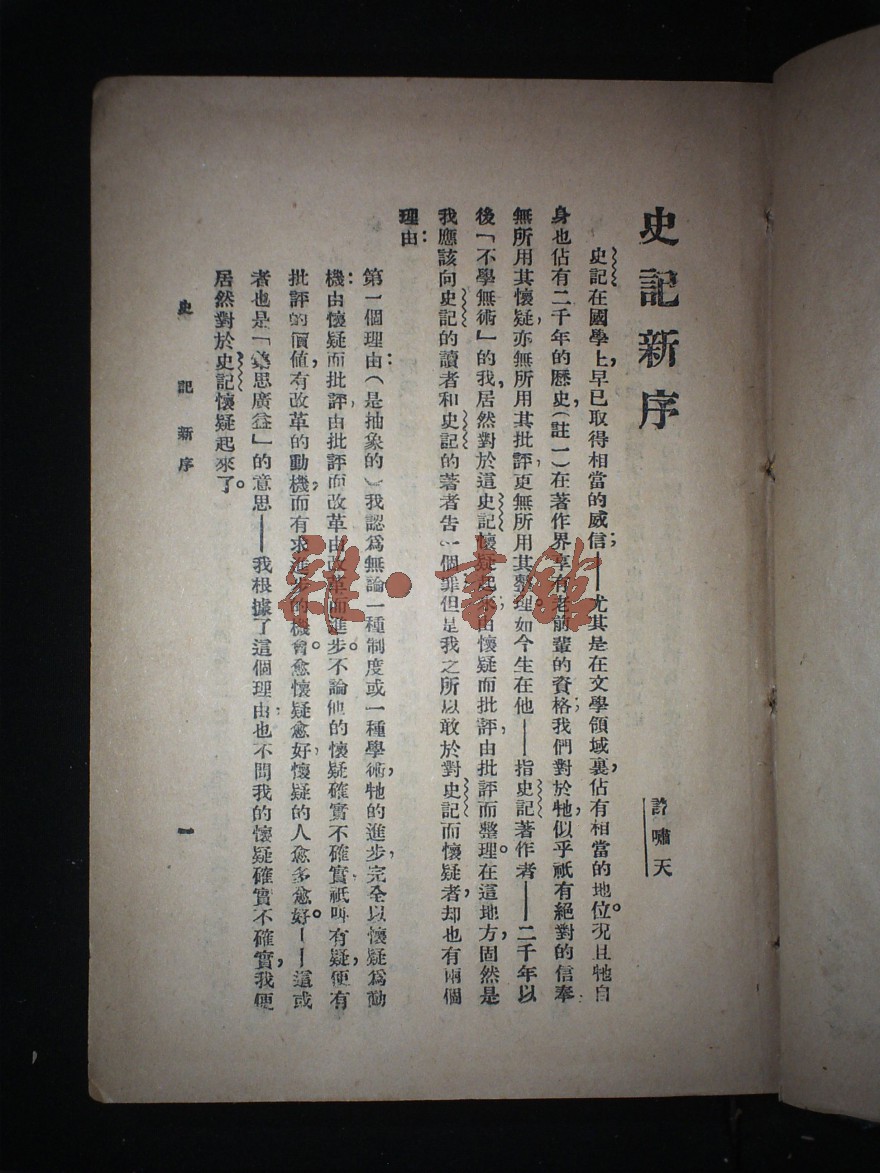 史記新序
許嘯天
史記在國學上,早已取得相當的威信;——尤其是在文學領域裏,佔有相當的地位。況且牠自
身也佔有二千年的歷史,(註一)在著作界享有老前輩的資格;我們對於牠,似乎祇有絕對的信奉,
無所用其懷疑,亦無所用其批評,更無所用其整理。如今生在他——指史記著作者——二千年以
後「不學無術」的我,居然對於這史記懷疑起來;由懷疑而批評,由批評而整理。在這地方,固然是
我應該向史記的讀者和史記的著者告一個罪;但是我之所以敢於對史記而懷疑者,却也有兩個
理由:
第一個理由:(是抽象的)我認爲無論一種制度或一種學術,牠的進步,完全以懷疑爲動
機:由懷疑而批評,由批評而改革,由改革而進步。不論他的懷疑確實不確實,祇叫有疑,便有
批評的價值,有改革的動機,而有求進步的機會。愈懷疑愈好,懷疑的人愈多愈好。——這或
者也是「集思廣益」的意思——我根據了這個理由,也不問我的懷疑確實不確實,我便
居然對於史記懷疑起來了。
史記新序
一
雜·書館